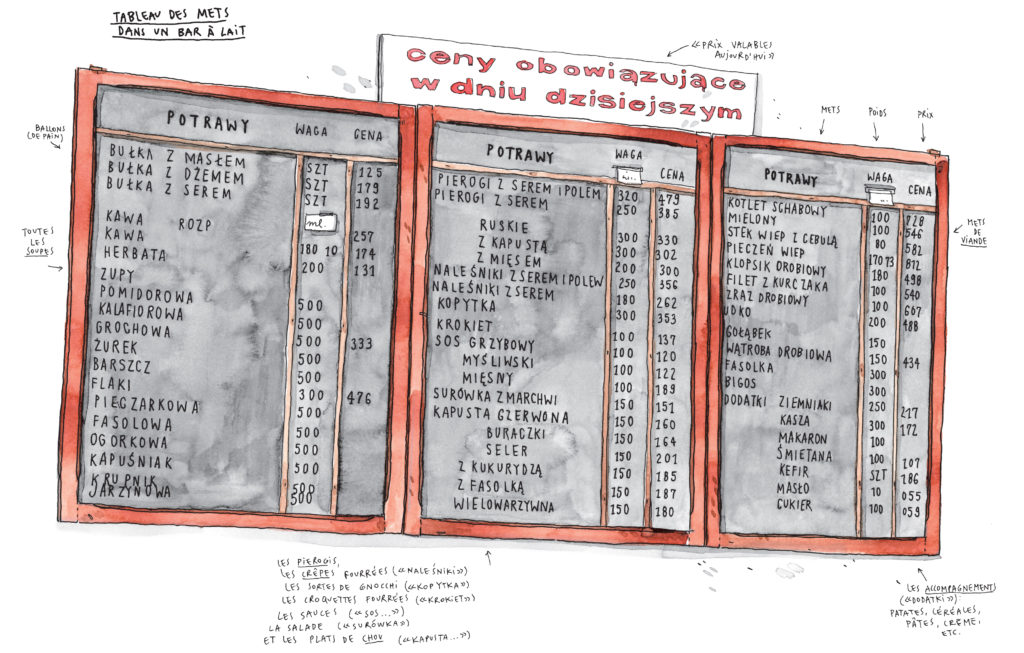 TABLEAU DES METS
DANS UN BAR À LAIT
«PRIX VALABLES
AUJOURD'HUI»
ceny obowiązujące
w dniu dzisiejszym
BALLONS
(DE PAIN)
TOUTES
LES
SOUPES
POTRAWY WAGA CENA
BUŁKA Z MASŁEM SZT 125
BUŁKA Z DŻEMEM SZT 179
BUŁKA Z SEREM SZT 192
ml.
KAWA ROZP 257
KAWA 180 10 174
HERBATA 200 131
ZUPY
POMIDOROWA 500
KALAFIOROWA 500
GROCHOWA 500 333
ŻUREK 500
BARSZCZ 500
FLAKI 300 476
PIECZARKOWA 500
FASOLOWA 500
OGORKOWA 500
KAPUŚNIAK 500
KRUPNIK 500
JARZYNOWA 500
POTRAWY WAGA CENA
PIEROGI Z SEREM I POLEM 320 479
PIEROGI Z SEREM 250 385
RUSKIE 300 330
Z KAPUSTĄ 300 302
Z MIĘSEM 200 300
NALEŚNIKI Z SEREM I POLEW 250 356
NALEŚNIKI Z SEREM 180 262
KOPYTKA 300 353
KROKIET 100 137
SOS GRZYBOWY 100 120
MYŚLIWSKI 100 122
MIĘSNY 100 189
SURÓWKA Z MARCHWI 150 151
KAPUSTA CZERWONA 150 160
BURACZKI 150 164
SELER 150 201
Z KUKURYDZĄ 150 185
Z FASOLKĄ 150 187
WIELOWARZYWNA 150 180
METS POIDS PRIX
POTRAWY WAGA CENA
KOTLET SCHABOWY 100 728
MIELONY 100 546
STEK WIEP Z CEBULĄ 80 582
PIECZEŃ WIEP 170 73 872
KLOPSIK DROBIOWY 180 498
FILET Z KURCZAKA 100 540
ZRAZ DROBIOWY 100 607
UDKO 200 488
GOŁĄBEK 150
WĄTROBA DROBIOWA 150 434
FASOLKA 300
BIGOS 300
DODATKI ZIEMNIAKI 250 217
KASZA 300 172
MAKARON 100
ŚMIETANA 100 107
KEFIR SZT 186
MASŁO 10 055
CUKIER 100 059
METS
DE
VIANDE
LES PIEROGIS,
LES CRÊPES FOURRÉES («NALEŚNIKI»)
LES SORTES DE GNOCCHI («KOPYTKA»)
LES CROQUETTES FOURRÉES («KROKIET»)
LES SAUCES («SOS...»)
LA SALADE («SURÓWKA»)
ET LES PLATS DE CHOU («KAPUSTA...»)
LES ACCOMPAGNEMENTS
(«DODATKI») :
PATATES, CÉRÉALES,
PÂTES, CRÈME,
ETC.